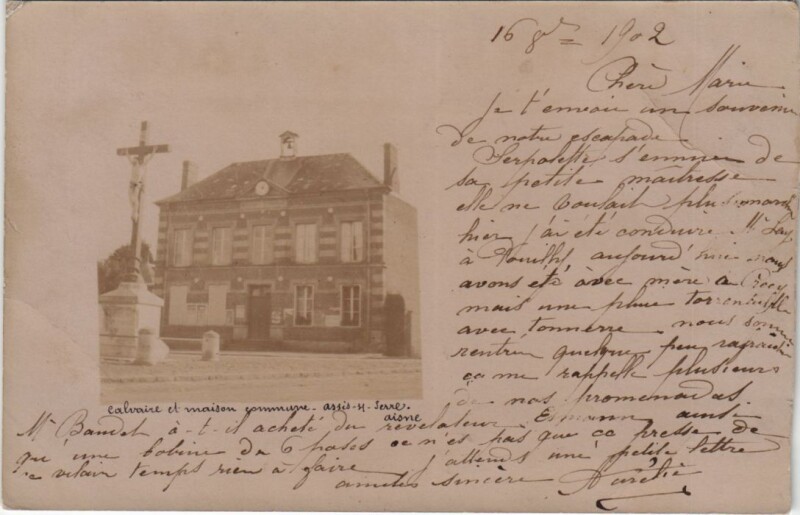 16 8bre 1902
Chère Marie
je t'envoie un souvenir
de notre escapade
Serpolette s'ennuie de
sa petite maîtresse
elle ne voulait plus
hier j'ai été conduire Mr
à Pouilly aujourd'hui nous
avons été avec mère à
mais une pluie torrentielle
avec tonnerre nous sommes
rentré quelque peu
ça me rappelle plusieurs
de nos promenades.
Calvaire et maison commune - Assis-s-Serre.
Aisne
Mr Baudet à-t-il acheté du révélateur ainsi
qu'une bobine de 6 poses ce n'es pas que ça presse de
ce vilain temps rien à faire j'attends une petite lettre
amitiés sincère Aurélie